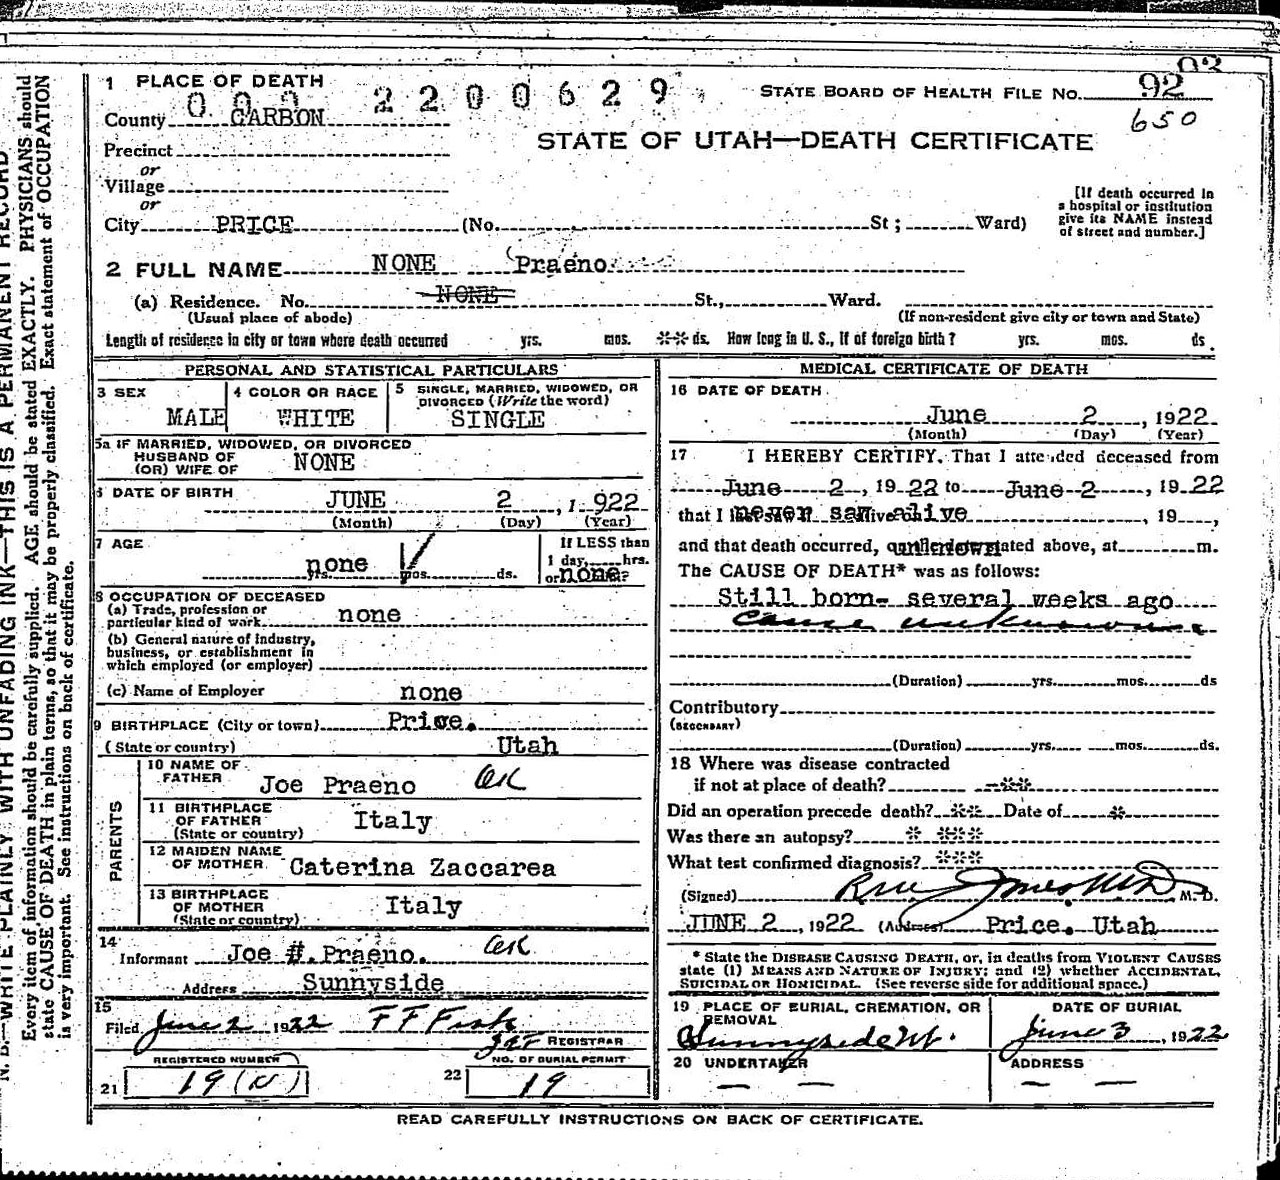 N. B.—WRITE PLAINLY, WITH UNFADING INK—THIS IS A PERMANENT RECORD
Every item of information should be carefully supplied. AGE should be stated EXACTLY. PHYSICIANS should
state CAUSE OF DEATH in plain terms, so that it may be properly classified. Exact statement of OCCUPATION
is very important. See instructions on back of certificate.
1 PLACE OF DEATH
2200629
STATE BOARD OF HEALTH FILE No. 92
650
County CARBON
STATE OF UTAH—DEATH CERTIFICATE
Precinct
or
Village
or
City PRICE (No. St; Ward)
[If death occurred in
a hospital or institution
give its NAME instead
of street and number.]
2 FULL NAME NONE Praeno
(a) Residence. No. NONE St., Ward.
(Usual place of abode) (If non-resident give city or town and State)
Length of residence in city or town where death occurred yrs. mos. *** ds. How long in U. S., if of foreign birth? yrs. mos. ds.
PERSONAL AND STATISTICAL PARTICULARS
3 SEX
MALE
4 COLOR OR RACE
WHITE
5 SINGLE, MARRIED, WIDOWED, OR
DIVORCED (Write the word)
SINGLE
5a IF MARRIED, WIDOWED, OR DIVORCED
HUSBAND OF
(OR) WIFE OF NONE
6 DATE OF BIRTH JUNE 2, 1922
(Month) (Day) (Year)
7 AGE
none yrs. mos. ds.
If LESS than
1 day, hrs.
or none?
8 OCCUPATION OF DECEASED
(a) Trade, profession or
particular kind of work none
(b) General nature of industry,
business, or establishment in
which employed (or employer)
(c) Name of Employer none
9 BIRTHPLACE (City or town) Price.
(State or country) Utah
PARENTS
10 NAME OF
FATHER Joe Praeno OK
11 BIRTHPLACE
OF FATHER Italy
(State or country)
12 MAIDEN NAME
OF MOTHER Caterina Zaccarea
13 BIRTHPLACE
OF MOTHER Italy
(State or country)
14
Informant Joe #. Praeno. OK
Address Sunnyside
15
Filed June 2 1922 F F Fisk
REGISTRAR
REGISTERED NUMBER
21 19 (N)
NO. OF BURIAL PERMIT
22 19
MEDICAL CERTIFICATE OF DEATH
16 DATE OF DEATH
June 2, 1922
(Month) (Day) (Year)
17 I HEREBY CERTIFY, That I attended deceased from
June 2, 1922 to June 2, 1922
that I never saw alive, 19,
and that death occurred, unknown stated above, at m.
The CAUSE OF DEATH* was as follows:
Still born- several weeks ago
cause unknown
(Duration) yrs. mos. ds
Contributory
(SECONDARY)
(Duration) yrs. mos. ds.
18 Where was disease contracted
if not at place of death? -***
Did an operation precede death? *** Date of *
Was there an autopsy? * ***
What test confirmed diagnosis? ***
(Signed) M. D.
JUNE 2, 1922 (Address) Price. Utah
* State the DISEASE CAUSING DEATH, or, in deaths from VIOLENT CAUSES
state (1) MEANS AND NATURE OF INJURY; and (2) whether ACCIDENTAL,
SUICIDAL OR HOMICIDAL. (See reverse side for additional space.)
19 PLACE OF BURIAL, CREMATION, OR
REMOVAL
Sunnyside Ut.
DATE OF BURIAL
June 3, 1922
20 UNDERTAKER
— —
ADDRESS
— —
READ CAREFULLY INSTRUCTIONS ON BACK OF CERTIFICATE.